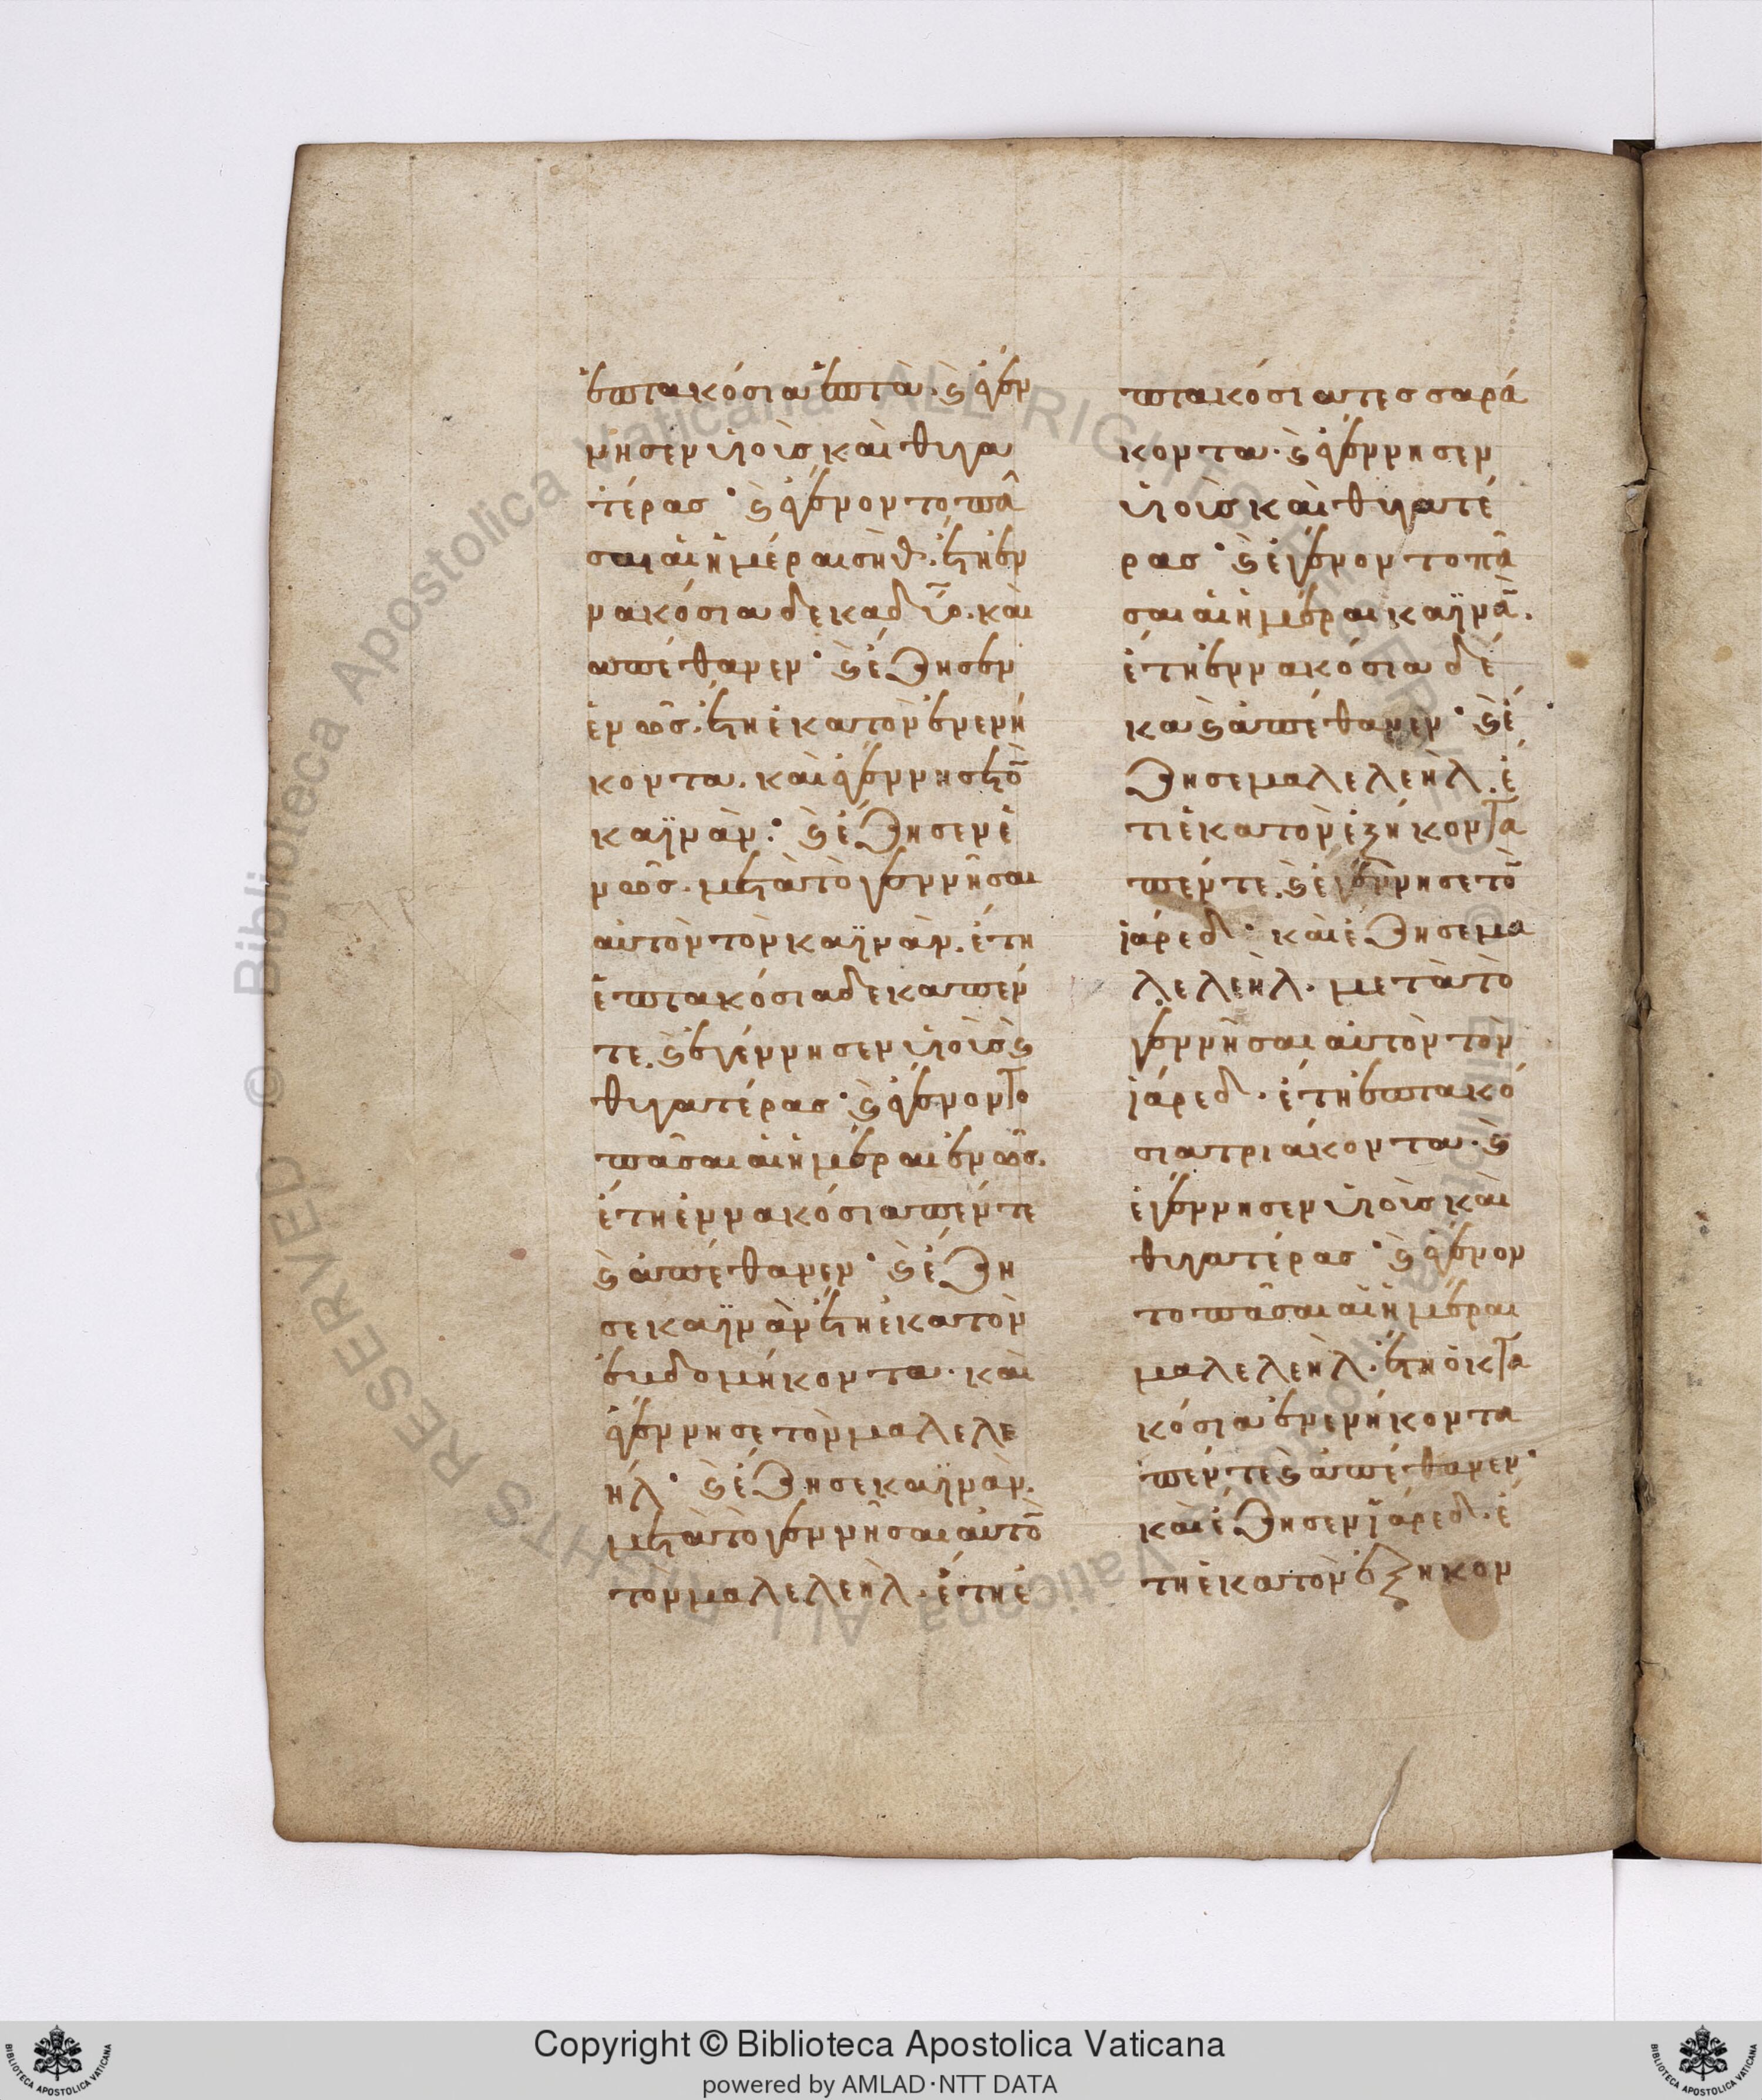 ἑπτακόσια ἑπτὰ· ϗ ἐγέν
νησεν υἱοὺσ καὶ θυγα
τέρασ· ϗ ἐγένοντο πᾶ
σαι αἱ ἡμέραι σὴθ· ἔτη ἐν
νακόσια δεκαδύο· καὶ
ἀπέθανεν· ϗ ἔζησεν
ἐνὼσ· ἔτη ἑκατὸν ἐνενή
κοντα· καὶ ἐγέννησε τὸ̄
καϊνὰν· ϗ ἔζησεν ἐ
νὼσ· μετὰ τὸ γεννῆσαι
αὐτὸν τὸν καϊνὰν· ἔτη
ἑπτακόσια δεκαπέν
τε· ϗ ἐγέννησεν υἱοὺσ ϗ
θυγατέρασ· ϗ ἐγένοντο
πᾶσαι αἱ ἡμέραι ἐνὼσ·
ἔτη ἐννακόσια πέντε
ϗ ἀπέθανεν· ϗ ἔζη
σε καϊνὰν ἔτη ἑκατὸν
ἑβδομήκοντα· καὶ
ἐγέννησε τὸν μαλελε
ήλ· ϗ ἔζησε καϊνὰν·
μετὰ τὸ γεννῆσαι αὐτὸ̄
τὸν μαλελεὴλ· ἔτη ἑ
πτακόσια τεσσαρά
κοντα· ϗ ἐγέννησεν
υἱοὺσ καὶ θυγατέ
ρασ· ϗ ἐγένοντο πᾶ
σαι αἱ ἡμέραι καϊνᾱ̀·
ἔτη ἐννακόσια δέ
κα ϗ ἀπέθανεν· ϗ ἔ
ζησε μαλελεὴλ· ἔ
τι ἑκατὸν ἑξήκοντα
πέντε· ϗ ἐγέννησε τὸ̄
ϊάρεδ· καὶ ἔζησε μα
λελεὴλ· μετὰ τὸ
γεννῆσαι αὐτὸν τὸν
ϊάρεδ· ἔτη ἑπτακό
σια τριάκοντα· ϗ
ἐγέννησεν υἱοὺσ καὶ
θυγατέρασ· ϗ ἐγένον
το πᾶσαι αἱ ἡμέραι
μαλελεὴλ· ἔτη ὀκτα
κόσια ἐνενήκοντα
πέντε ϗ ἀπέθανεν·
καὶ ἔζησεν ϊάρεδ· ἔ
τη ἑκατὸν ἑξήκον
Copyright © Biblioteca Apostolica Vaticana
powered by AMLAD·NTT DATA